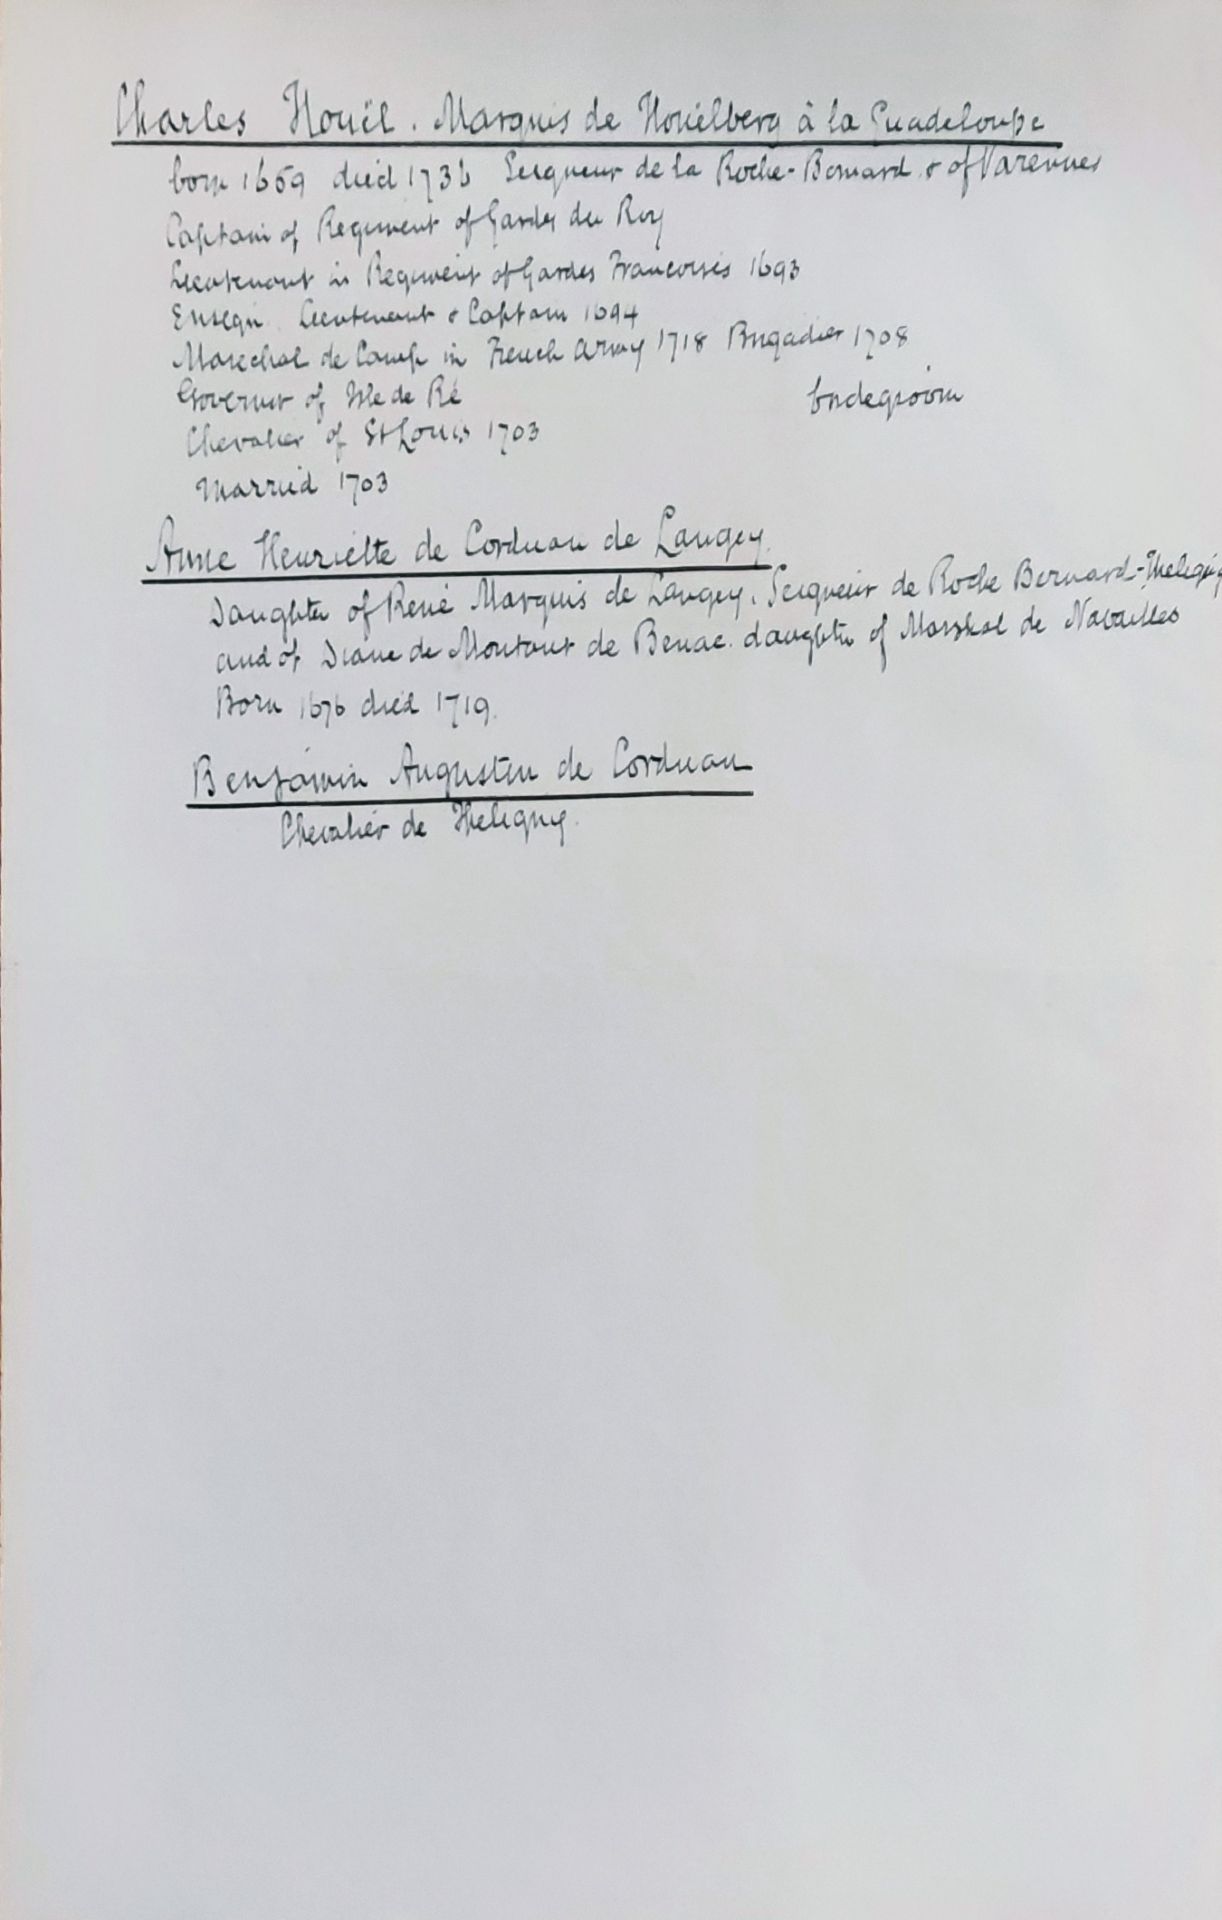 Charles Houël. Marquis de Houëlberg à la Guadeloupe
born 1659 died 1736 Seigneur de la Roche-Bernard & of Varennes
Captain of Regiment of Gardes du Roy
Lieutenant in Regiment of Gardes Francoises 1693
Ensign Lieutenant & Captain 1694
Marechal de Camp in French Army 1718 Brigadier 1708
Governor of Isle de Ré
bridegroom
Chevalier of St Louis 1703
Married 1703
Anne Henriette de Corduan de Langey.
Daughter of René Marquis de Langey, Seigneur de Roche Bernard-Theligny
and of Diane de Montaut de Benac. daughter of Marshal de Navailles
Born 1676 died 1719.
Benjamin Augustin de Corduan
Chevalier de Theligny.